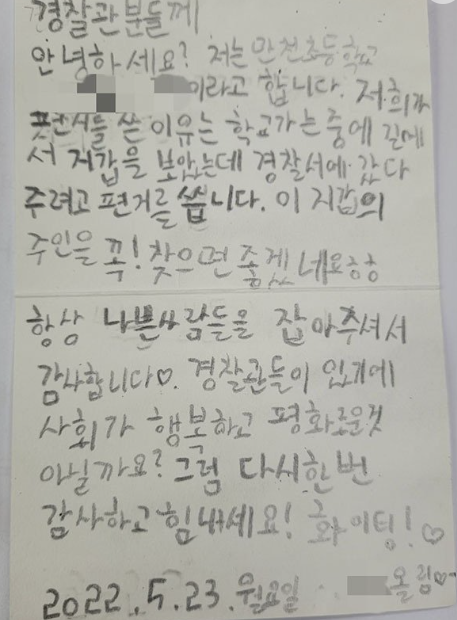 경찰관분들께
안녕하세요? 저는 만천초등학교
이라고 합니다. 저희가
편지를 쓴 이유는 학교가는 중에 길에
서 지갑을 보았는데 경찰서에 갔다
주려고 편거를 씁니다. 이 지갑의
주인을 꼭! 찾으면 좋겠네요ㅎㅎ
항상 나쁜사람들을 잡아주셔서
감사합니다♡. 경찰관들이 있기에
사회가 행복하고 평화로운것
아닐까요? 그럼 다시한번
감사하고 힘내세요! 화이팅!♡
2022.5.23.월요일 올림♡